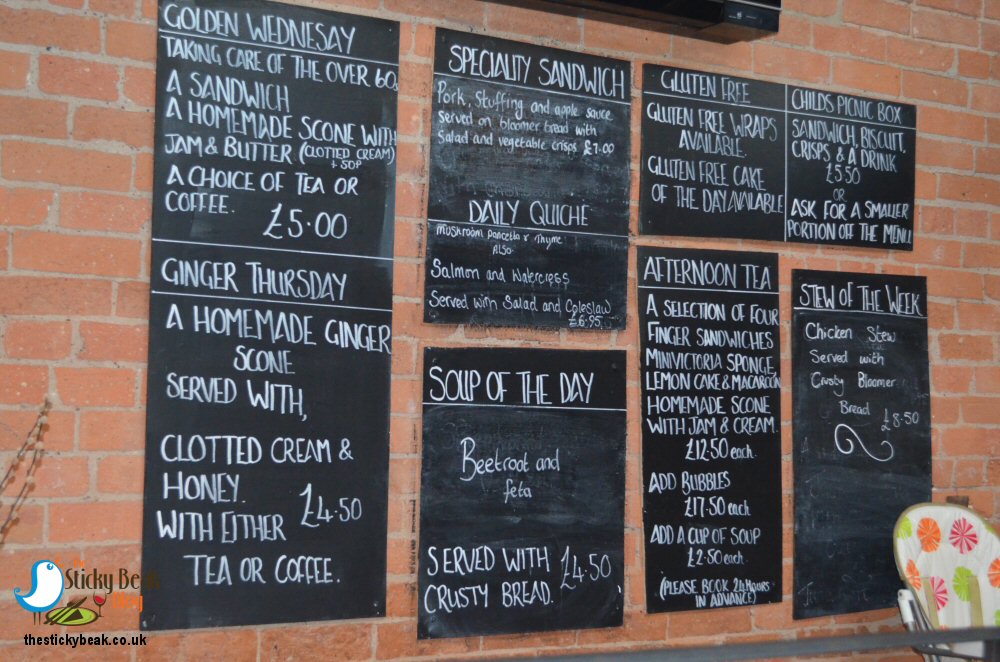 GOLDEN WEDNESAY
TAKING CARE OF THE OVER 60s
A SANDWICH
A HOMEMADE SCONE WITH
JAM & BUTTER (CLOTTED CREAM)
+50P
A CHOICE OF TEA OR
COFFEE.
£5.00
GINGER THURSDAY
A HOMEMADE GINGER
SCONE
SERVED WITH,
CLOTTED CREAM &
HONEY.
£4.50
WITH EITHER
TEA OR COFFEE.
SPECIALITY SANDWICH
Pork, Stuffing and apple sauce
served on bloomer bread with
Salad and vegetable crisps £7.00
DAILY QUICHE
Mushroom Pancetta & Thyme
ALSO
Salmon and Watercress
Served with Salad and Coleslaw
£6.95
SOUP OF THE DAY
Beetroot and
feta
SERVED WITH
CRUSTY BREAD.
£4.50
GLUTEN FREE
GLUTEN FREE WRAPS
AVAILABLE.
GLUTEN FREE CAKE
OF THE DAY AVAILABLE
CHILDS PICNIC BOX
SANDWICH, BISCUIT,
CRISPS & A DRINK
£5.50
OR
ASK FOR A SMALLER
PORTION OFF THE MENU
AFTERNOON TEA
A SELECTION OF FOUR
FINGER SANDWICHES
MINIVICTORIA SPONGE,
LEMON CAKE & MACAROON
HOMEMADE SCONE
WITH JAM & CREAM.
£12.50 each.
ADD BUBBLES
£17.50 each
ADD A CUP OF SOUP
£2.50 each.
(PLEASE BOOK 24 HOURS
IN ADVANCE)
STEW OF THE WEEK
Chicken Stew
Served with
Crusty Bloomer
Bread
£8.50
Sticky Beak
Blog
thestickybeak.co.uk